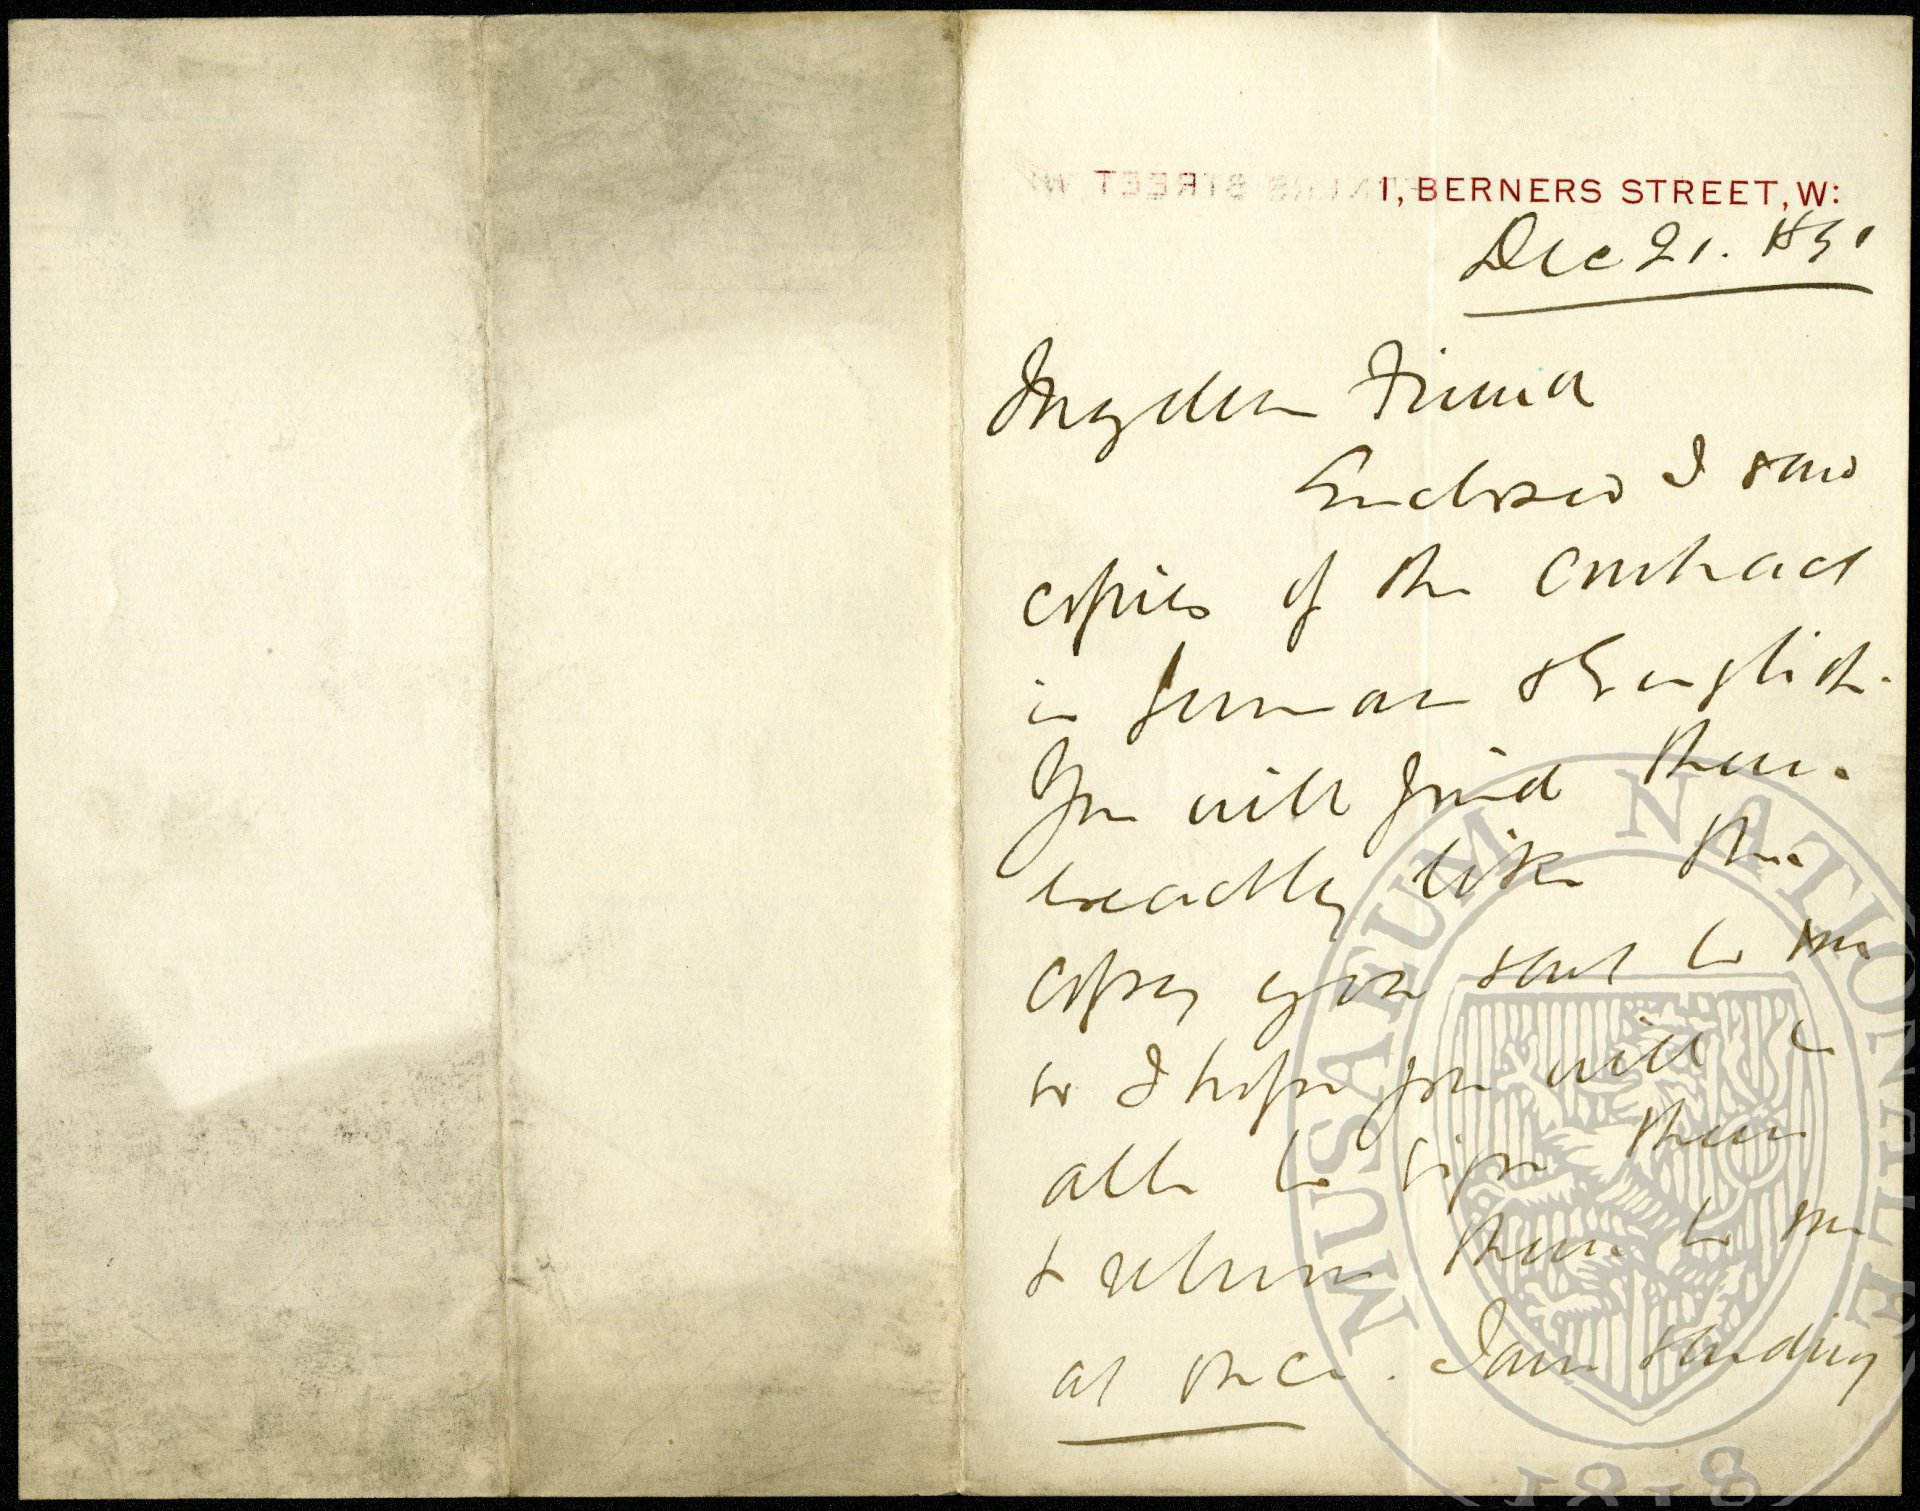 1, BERNERS STREET, W:
Dec 21. 1891
My dear Friend
Enclosed I send
copies of the contract
in German & English.
You will find them
exactly like the
copy you sent to me
so I hope you will be
able to sign them
& return them to me
at once. I am sending
MUSAEUM NATIONALE
1818